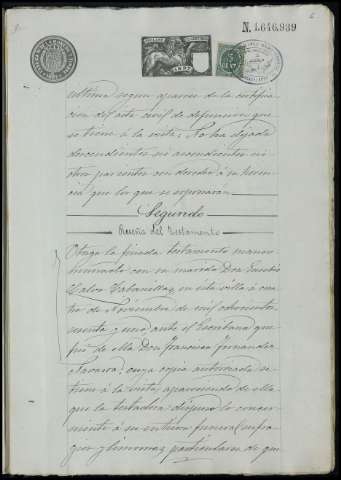 N. 1.646.939
última segun aparece de la certifica-
cion del acta civil de defuncion que
se tiene á la vista; No ha dejado
descendientes ni ascendientes ni
otro pariente con derecho á su heren-
cia que los que se espresarán
Segundo
Reseña del Testamento
Otorgó la finada testamento manco-
munado con su marido Don Eusebio
Calvo Cabanillas, en esta villa á cua-
tro de Noviembre de mil ochocientos
sesenta y uno ante el Escribano que
fué de ella Don Francisco Fernandez
cuya copia autorizada se
tiene á la vista, apareciendo de ella
que la testadora dispuso lo concer-
niente á su entierro funeral sufra-
gios y limosnas particulares de que